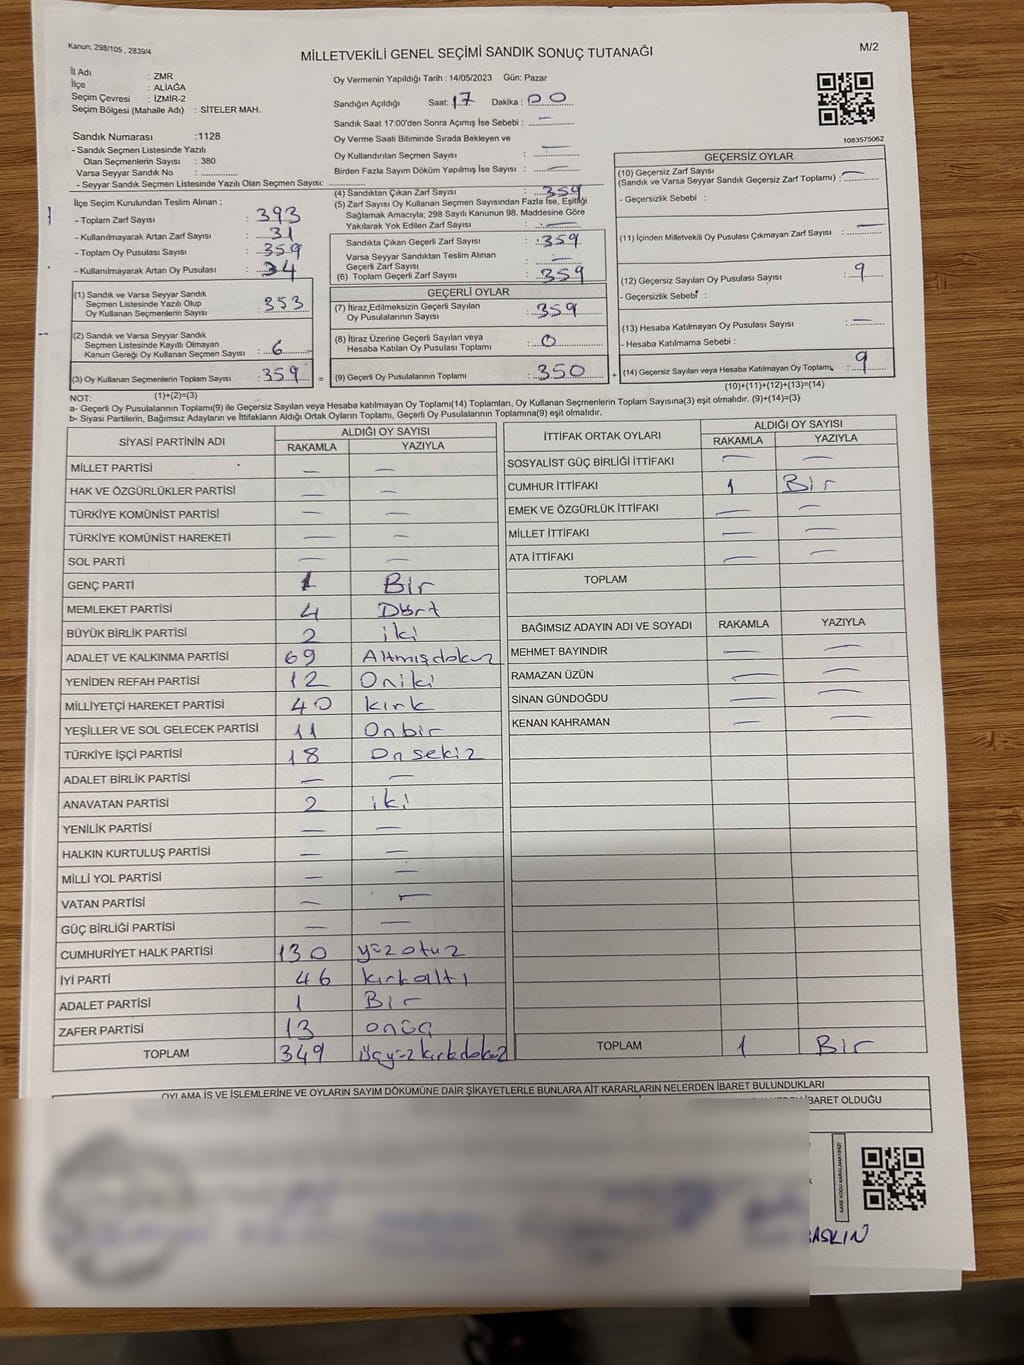 Kanun: 298/105 , 2839/4
M/2
MİLLETVEKİLİ GENEL SEÇİMİ SANDIK SONUÇ TUTANAĞI
İl Adı : ZMR
İlçe : ALİAĞA
Seçim Çevresi : İZMİR-2
Seçim Bölgesi (Mahalle Adı) : SİTELER MAH.
Oy Vermenin Yapıldığı Tarih : 14/05/2023 Gün: Pazar
Sandığın Açıldığı Saat: 17 Dakika : 00
Sandık Saat 17:00'den Sonra Açımış İse Sebebi : —
Oy Verme Saati Bitiminde Sırada Bekleyen ve
Oy Kullandırılan Seçmen Sayısı : —
Birden Fazla Sayım Döküm Yapılmış İse Sayısı : —
1083575062
Sandık Numarası :1128
- Sandık Seçmen Listesinde Yazılı
Olan Seçmenlerin Sayısı : 380
Varsa Seyyar Sandık No :
- Seyyar Sandık Seçmen Listesinde Yazılı Olan Seçmen Sayısı:
İlçe Seçim Kurulundan Teslim Alınan ;
- Toplam Zarf Sayısı : 393
- Kullanılmayarak Artan Zarf Sayısı : 31
- Toplam Oy Pusulası Sayısı : 359
- Kullanılmayarak Artan Oy Pusulası : 34
(1) Sandık ve Varsa Seyyar Sandık
Seçmen Listesinde Yazılı Olup
Oy Kullanan Seçmenlerin Sayısı : 353
(2) Sandık ve Varsa Seyyar Sandık
Seçmen Listesinde Kayıtlı Olmayan
Kanun Gereği Oy Kullanan Seçmen Sayısı : 6
(3) Oy Kullanan Seçmenlerin Toplam Sayısı : 359 =
(4) Sandıktan Çıkan Zarf Sayısı : 359
(5) Zarf Sayısı Oy Kullanan Seçmen Sayısından Fazla İse, Eşitliği
Sağlamak Amacıyla; 298 Sayılı Kanunun 98. Maddesine Göre
Yakılarak Yok Edilen Zarf Sayısı : —
Sandıkta Çıkan Geçerli Zarf Sayısı : 359
Varsa Seyyar Sandıktan Teslim Alınan
Geçerli Zarf Sayısı : —
(6) Toplam Geçerli Zarf Sayısı : 359
GEÇERLİ OYLAR
(7) İtiraz Edilmeksizin Geçerli Sayılan
Oy Pusulalarının Sayısı : 359
(8) İtiraz Üzerine Geçerli Sayılan veya
Hesaba Katılan Oy Pusulası Toplamı : 0
(9) Geçerli Oy Pusulalarının Toplamı : 350 +
GEÇERSİZ OYLAR
(10) Geçersiz Zarf Sayısı
(Sandık ve Varsa Seyyar Sandık Geçersiz Zarf Toplamı) : —
- Geçersizlik Sebebi :
(11) İçinden Milletvekili Oy Pusulası Çıkmayan Zarf Sayısı : —
(12) Geçersiz Sayılan Oy Pusulası Sayısı : 9
- Geçersizlik Sebebi :
(13) Hesaba Katılmayan Oy Pusulası Sayısı : —
- Hesaba Katılmama Sebebi :
(14) Geçersiz Sayılan veya Hesaba Katılmayan Oy Toplamı : 9
NOT: (1)+(2)=(3)
(10)+(11)+(12)+(13)=(14)
a- Geçerli Oy Pusulalarının Toplamı(9) ile Geçersiz Sayılan veya Hesaba katılmayan Oy Toplamı(14) Toplamları, Oy Kullanan Seçmenlerin Toplam Sayısına(3) eşit olmalıdır. (9)+(14)=(3)
b- Siyasi Partilerin, Bağımsız Adayların ve İttifakların Aldığı Ortak Oyların Toplamı, Geçerli Oy Pusulalarının Toplamına(9) eşit olmalıdır.
SİYASİ PARTİNİN ADI ALDIĞI OY SAYISI
RAKAMLA YAZIYLA
MİLLET PARTİSİ — —
HAK VE ÖZGÜRLÜKLER PARTİSİ — —
TÜRKİYE KOMÜNİST PARTİSİ — —
TÜRKİYE KOMÜNİST HAREKETİ — —
SOL PARTİ — —
GENÇ PARTİ 1 Bir
MEMLEKET PARTİSİ 4 Dört
BÜYÜK BİRLİK PARTİSİ 2 iki
ADALET VE KALKINMA PARTİSİ 69 Altmışdokuz
YENİDEN REFAH PARTİSİ 12 Oniki
MİLLİYETÇİ HAREKET PARTİSİ 40 kırk
YEŞİLLER VE SOL GELECEK PARTİSİ 11 Onbir
TÜRKİYE İŞÇİ PARTİSİ 18 Onsekiz
ADALET BİRLİK PARTİSİ — —
ANAVATAN PARTİSİ 2 iki
YENİLİK PARTİSİ — —
HALKIN KURTULUŞ PARTİSİ — —
MİLLİ YOL PARTİSİ — —
VATAN PARTİSİ — —
GÜÇ BİRLİĞİ PARTİSİ — —
CUMHURİYET HALK PARTİSİ 130 yüzotuz
İYİ PARTİ 46 kırkaltı
ADALET PARTİSİ 1 Bir
ZAFER PARTİSİ 13 onüç
TOPLAM 349 üçyüzkırkdokuz
İTTİFAK ORTAK OYLARI ALDIĞI OY SAYISI
RAKAMLA YAZIYLA
SOSYALİST GÜÇ BİRLİĞİ İTTİFAKI — —
CUMHUR İTTİFAKI 1 Bir
EMEK VE ÖZGÜRLÜK İTTİFAKI — —
MİLLET İTTİFAKI — —
ATA İTTİFAKI — —
TOPLAM
BAĞIMSIZ ADAYIN ADI VE SOYADI RAKAMLA YAZIYLA
MEHMET BAYINDIR — —
RAMAZAN ÜZÜN — —
SİNAN GÜNDOĞDU — —
KENAN KAHRAMAN — —
TOPLAM 1 Bir
OYLAMA İŞ VE İŞLEMLERİNE VE OYLARIN SAYIM DÖKÜMÜNE DAİR ŞİKAYETLERLE BUNLARA AİT KARARLARIN NELERDEN İBARET BULUNDUKLARI
İBARET OLDUĞU
BASKIN